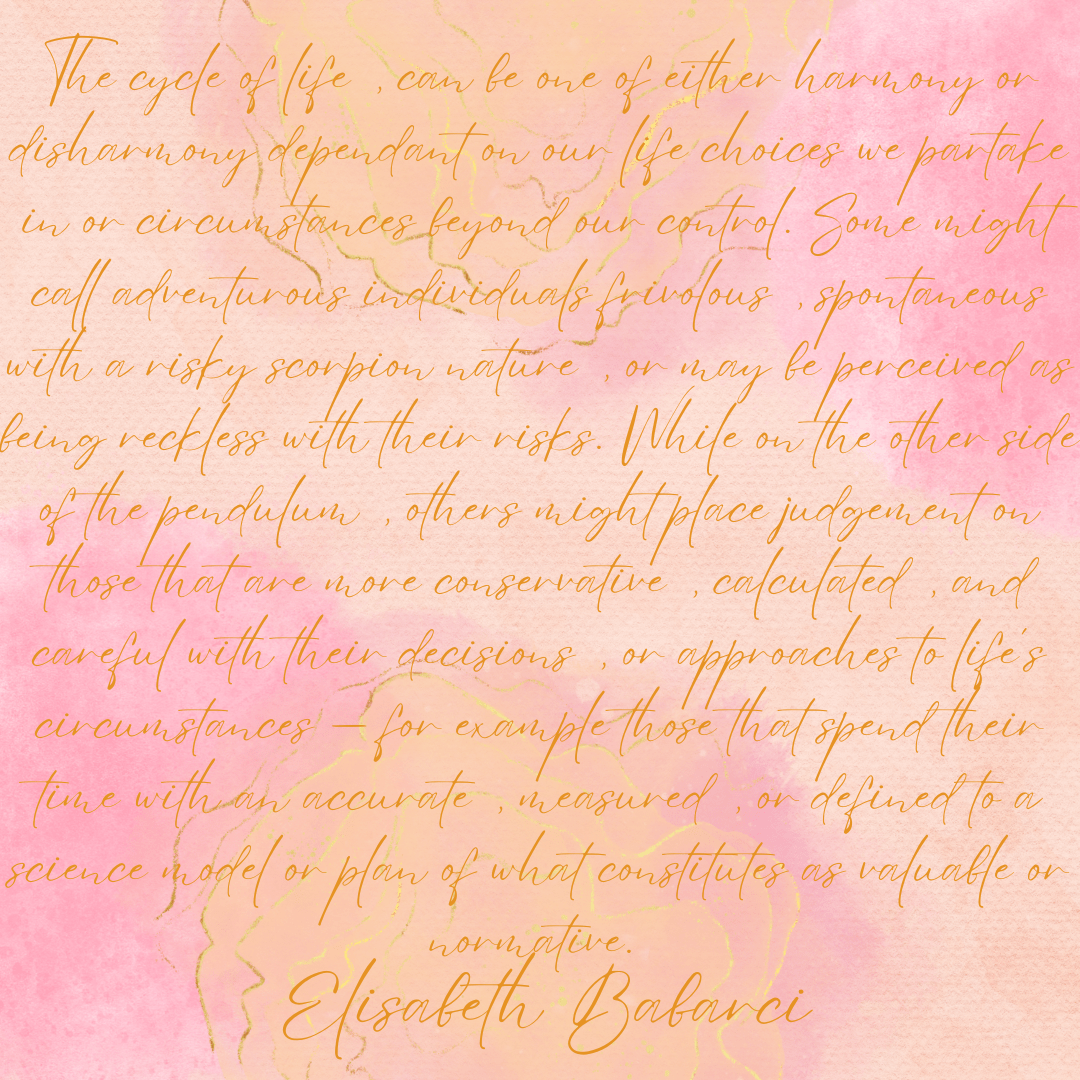 The cycle of life , can be one of either harmony or
disharmony dependant on our life choices we partake
in or circumstances beyond our control. Some might
call adventurous individuals frivolous , spontaneous
with a risky scorpion nature , or may be perceived as
being reckless with their risks. While on the other side
of the pendulum , others might place judgement on
those that are more conservative , calculated , and
careful with their decisions , or approaches to life's
circumstances – for example those that spend their
time with an accurate , measured , or defined to a
science model or plan of what constitutes as valuable or
normative.
Elisabeth Babarci